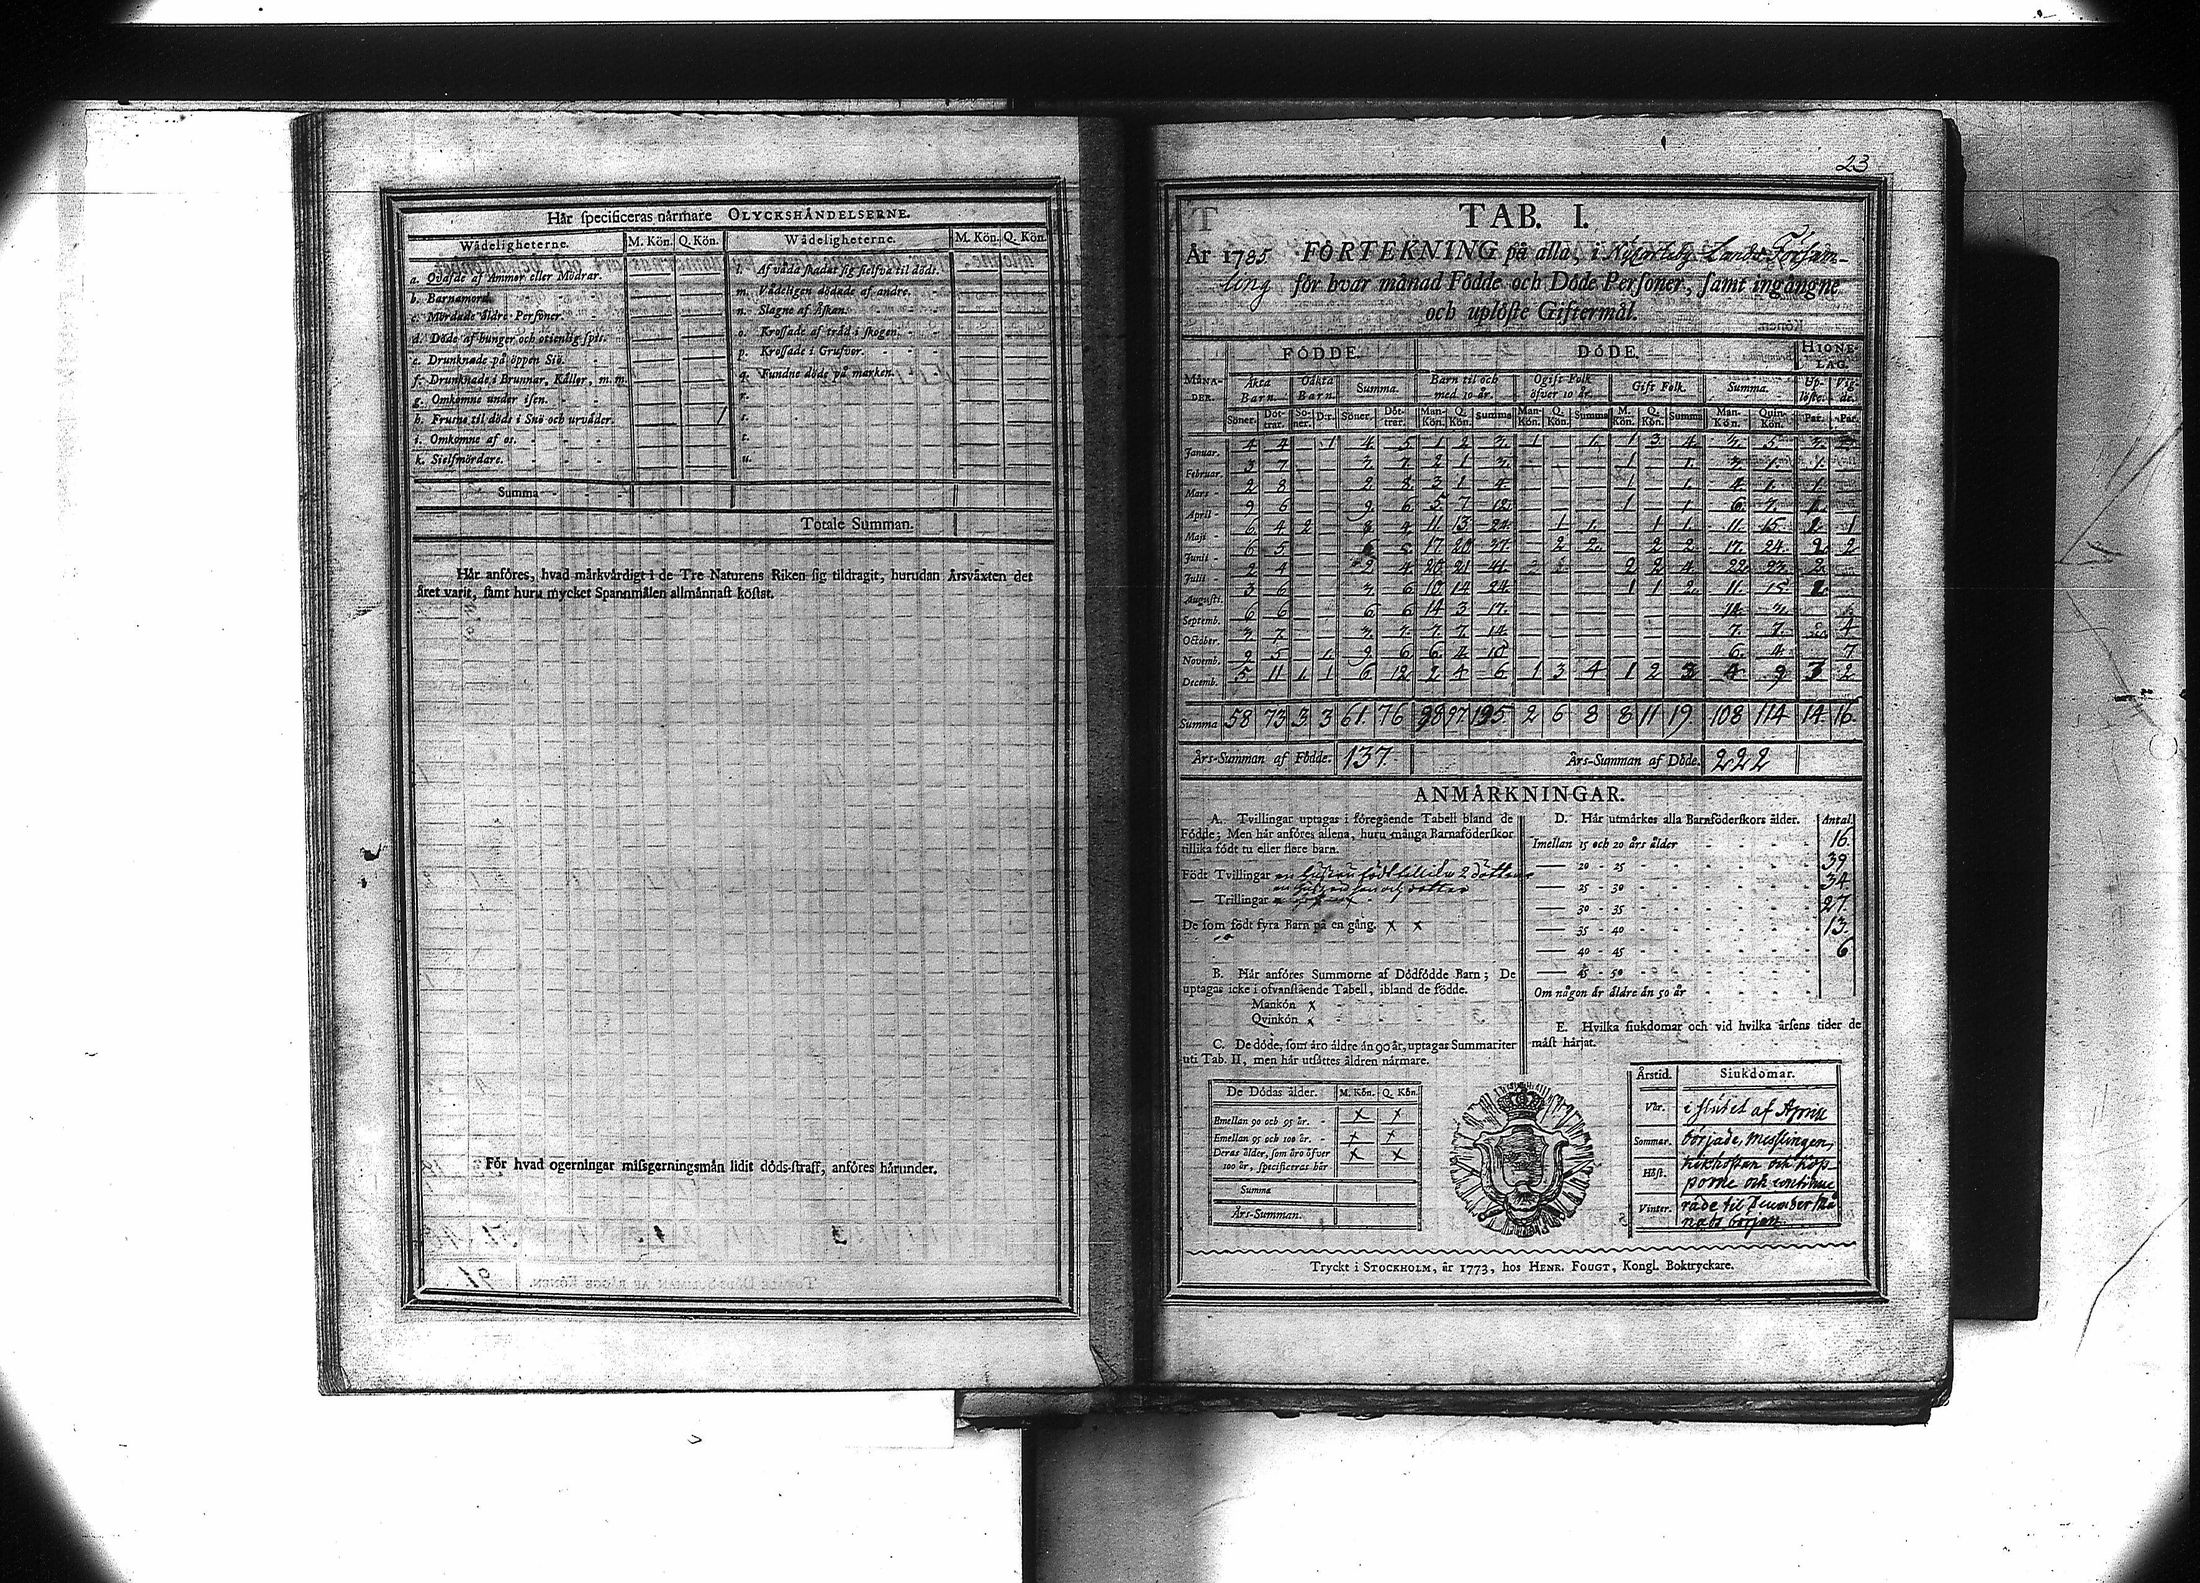 Här specificeras närmare OLYCKSHÄNDELSERNE.
Wådeligheterne. M. Kön. Q. Kön. Wådeligheterne. M. Kön. Q. Kön.
a. Qväfde af Ammor eller Mödrar. l. Af våda skadat sig sielfva til döds.
b. Barnamord. m. Vådeligen dödade af andre.
c. Mördade äldre Personer. n. Slagne af Åskan.
d. Döde af hunger och otienlig spis. o. Krossade af träd i skogen.
e. Drunknade på öppen Siö. p. Krossade i Grufvor.
f. Drunknade i Brunnar, Källor, m. m. q. Fundne döde på marken.
g. Omkomne under isen. r.
h. Frusne til döds i Snö och urväder. 1 s.
i. Omkomne af os. t.
k. Sielfmördare. u.
Summa
Totale Summan.
Här anföres, hvad märkvärdigt i de Tre Naturens Riken sig tildragit, hurudan Årsväxten det
året varit, samt huru mycket Spannmålen allmännast kostat.
För hvad ogerningar missgerningsmän lidit döds-straff, anföres härunder.
23
TAB. I.
År 1785 FÖRTEKNING på alla, i Lands Församling
för hvar månad Födde och Döde Personer, samt ingångne
och uplöste Giftermål.
MÅNADER. FÖDDE. DÖDE. HIONELAG.
Äkta Barn. Oäkta Barn. Summa. Barn til och med 10 år. Ogift Folk öfver 10 år. Gift Folk. Summa. Uplöste. Vigde.
Söner. Döttrar. Söner. D:r. Söner. Döttrar. Mankön. Q. Kön. Summa Mankön. Q. Kön. Summa M. Kön. Q. Kön. Summa Mankön. Quinkön. Par. Par.
Januar. 4 4 1 4 5 1 2 3 1 1 1 3 4 3 5 3
Februar. 3 7 3 7 2 1 3 1 1 3 1 1
Mars 2 8 2 8 3 1 4 1 1 4 1 1
April 9 6 9 6 5 7 12 1 1 6 7 1
Maji 6 4 2 8 4 11 13 24 1 1 1 1 11 15 1
Junii 6 5 17 20 37 2 2 2 2 17 24 2 2
Julii 2 4 2 4 20 21 41 2 2 4 22 23 2
Augusti. 3 6 3 6 10 14 24 1 1 2 11 15
Septemb. 6 6 6 6 14 3 17 14 3
October. 3 7 3 7 7 7 14 7 7 4
Novemb. 9 5 1 9 6 6 4 10 6 4 7
Decemb. 5 11 1 1 6 12 2 4 6 1 3 4 1 2 3 4 9 3 2
Summa 58 73 3 3 61 76 98 97 195 2 6 8 8 11 19 108 114 14 16
Års-Summan af Födde. 137 Års-Summan af Döde. 222
ANMÄRKNINGAR.
A. Tvillingar uptagas i föregående Tabell bland de
Födde; Men här anföres allena, huru många Barnaföderskor
tillika födt tu eller flere barn.
Födt Tvillingar en hustru födt 2 döttrar
en hustru son och dotter
— Trillingar
De som födt fyra Barn på en gång. x x
B. Här anföres Summorne af Dödfödde Barn; De
uptagas icke i ofvanstående Tabell, ibland de födde.
Mankön x
Qvinkön x
C. De döde, som äro äldre än 90 år, uptagas Summariter
uti Tab. II, men här utsättes åldren närmare.
De Dödas ålder. M. Kön. Q. Kön
Emellan 90 och 95 år. x x
Emellan 95 och 100 år. x x
Deras ålder, som äro öfver x x
100 år, specificeras här
Summa
Års-Summan.
D. Här utmärkes alla Barnföderskors ålder. Antal
Imellan 15 och 20 års ålder 16
— 20 - 25 39
— 25 - 30 34
— 30 - 35 27
— 35 - 40 13
— 40 - 45 6
— 45 - 50
Om någon är äldre än 50 år
E. Hvilka siukdomar och vid hvilka årsens tider de
mäst härjat.
Årstid. Siukdomar.
Vår. i slutet af April
Sommar. började, messlingen,
Höst. kikhostan och kop
porne och continue
Vinter. rade til December Må
nads början
Tryckt i STOCKHOLM, år 1773, hos HENR. FOUGT, Kongl. Boktryckare.